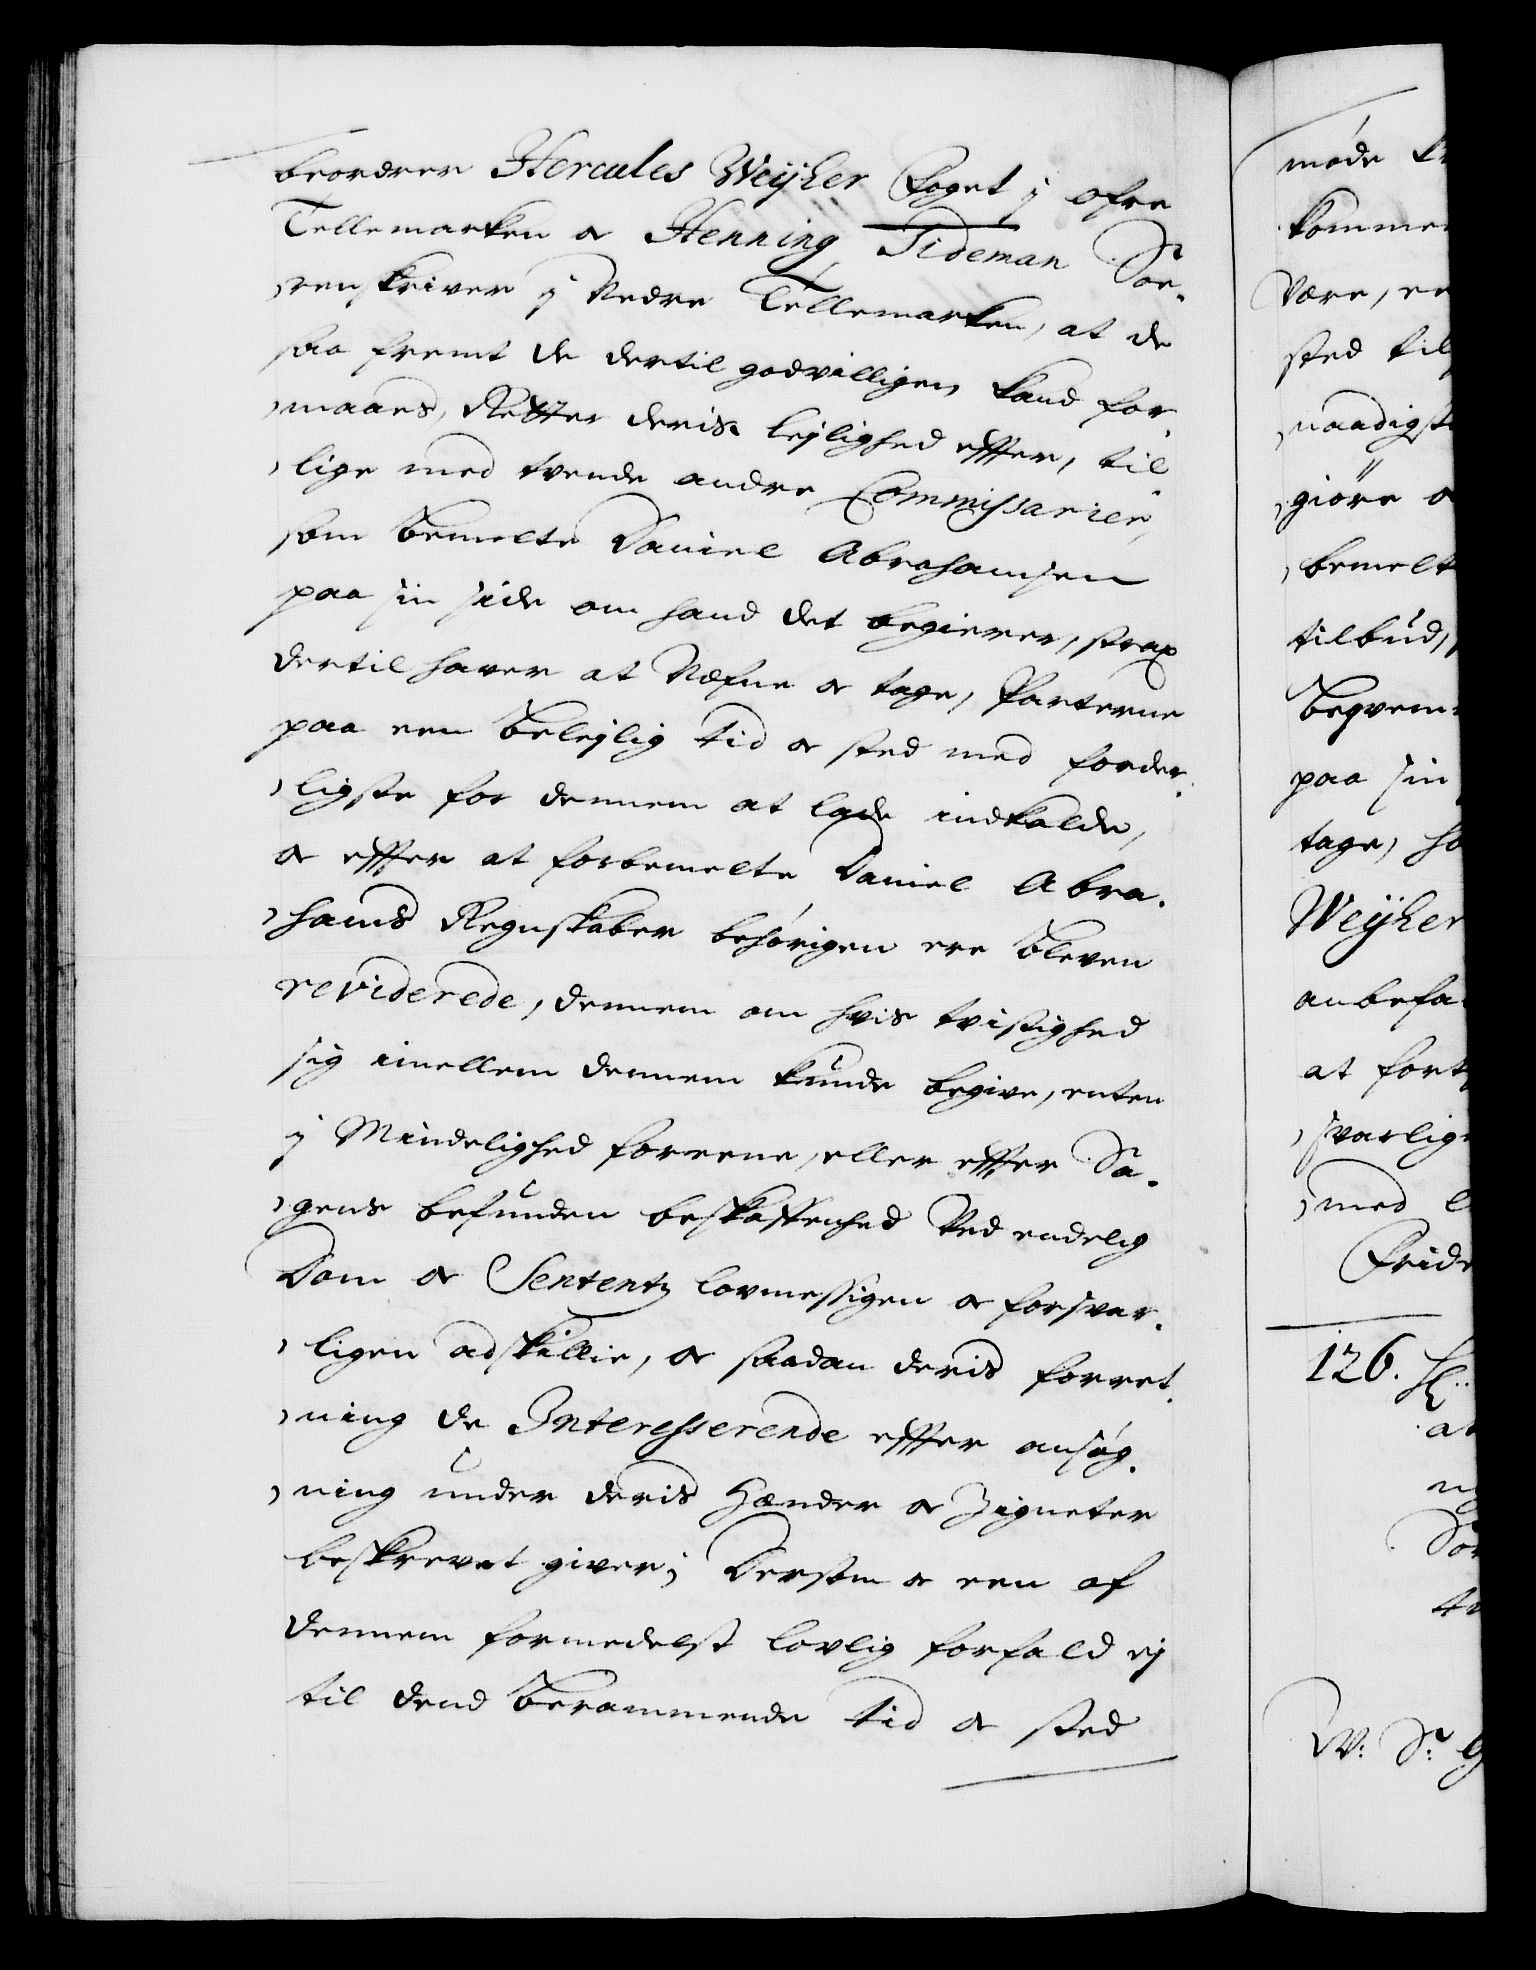 beordrer Hercules Weÿher Foget j øfre
Tellemarken og Henning Tideman Soe-
renskriver j Nedre Tellemarken, at de
saa fremt de dertil godvilligen kand for-
maaes, Retter deris lejlighed effter, til
lige med tvende andre Commissarier,
som bemelte Daniel Abrahamsen
paa sin side om hand det begierer, strax
dertil haver at Nefne og tage, Parterne
paa een belejlig tid og sted med forder-
ligste for dennem at lade indkalde,
og effter at forbemelte Daniel Abra-
hams Regnskaber behørigen ere bleven
reviderede, dennem om hvis tvistighed
sig imellem dennem kunde begive, enten
j Mindelighed foreene, eller effter Sa-
gens befunden beskaffenhed Ved endelig
Dom og Sententz lovmessigen og forsvar-
ligen adskillie, og saadan deris forret-
ning de Interesserende effter ansøg-
ning under deris Hænder og Zigneter
beskrevet giver; Dersom og een af
dennem formedelst lovlig forfald ej
til dend berammende tid og sted
møde
komme
Være, en
sted til
naadigst
giøre o
bemelt
tilbud,
begvem
paa sin
tage, ha
Weÿher
anbefa
at fort
svarlig
med
Frid
126.
at